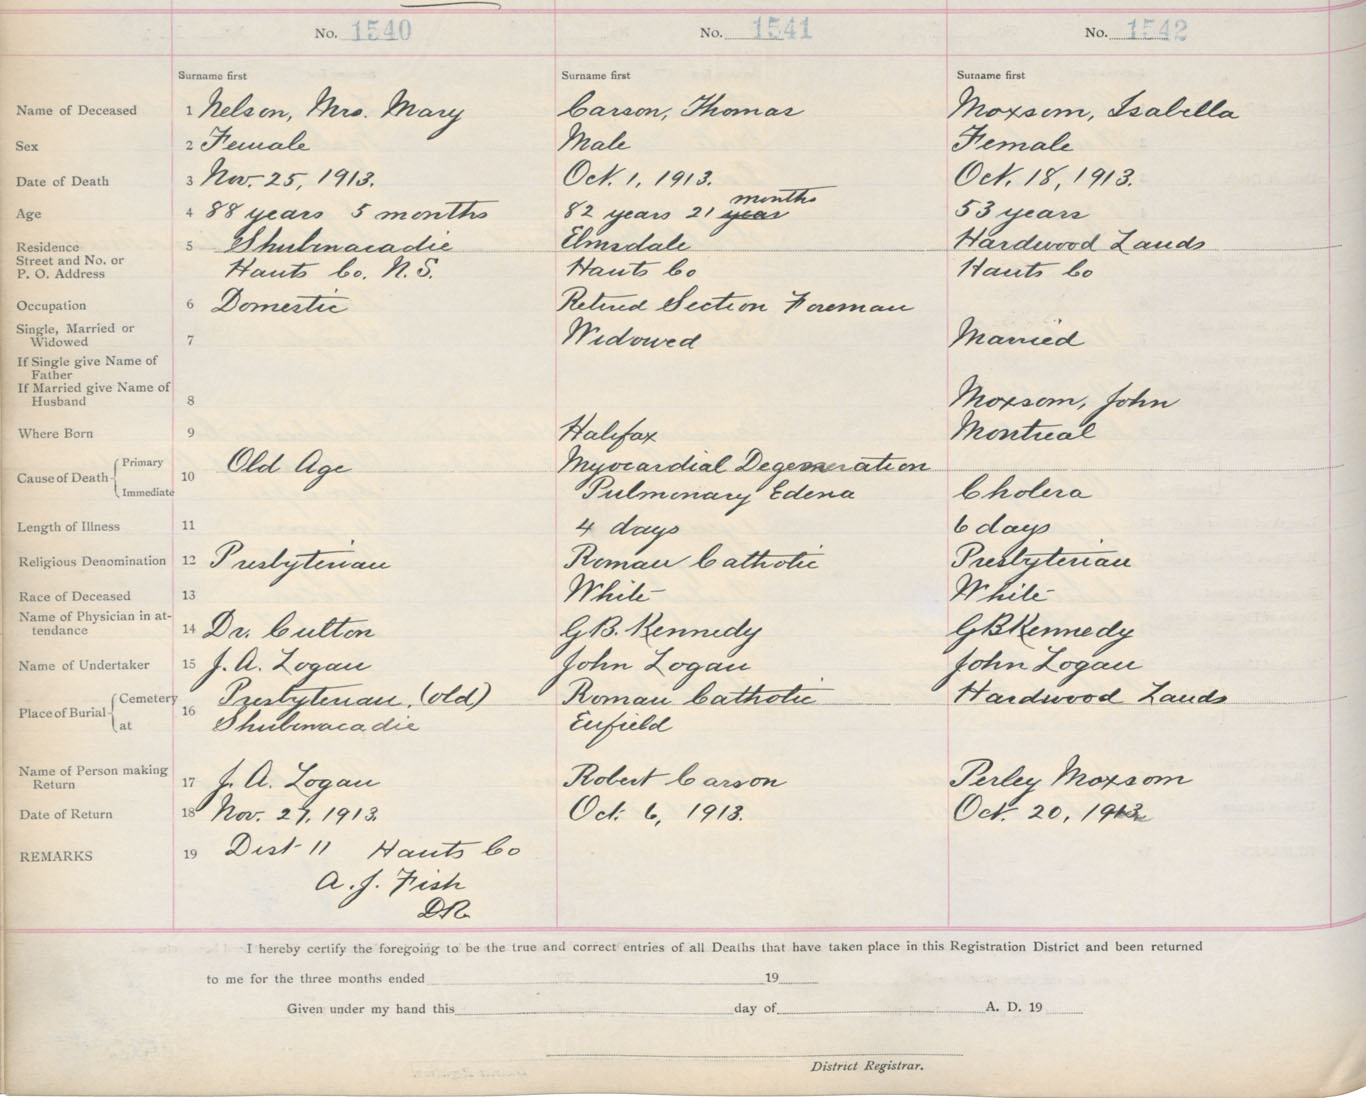 No. 1540 No. 1541 No. 1542
Surname first Surname first Surname first
Name of Deceased 1 Nelson, Mrs. Mary Carson, Thomas Moxsom, Isabella
Sex 2 Female Male Female
Date of Death 3 Nov. 25, 1913. Oct. 1, 1913. Oct. 18, 1913.
months
Age 4 88 years 5 months 82 years 21 year 53 years
Residence 5 Shubenacadie Elmsdale Hardwood Lands
Street and No. or
P. O. Address Hants Co. N.S. Hants Co Hants Co
Occupation 6 Domestic Retired Section Foreman
Single, Married or
Widowed 7 Widowed Married
If Single give Name of
Father
If Married give Name of
Husband 8 Moxsom, John
Where Born 9 Halifax Montreal
Cause of Death Primary 10 Old Age Myocardial Degeneration
Immediate Pulmonary Edema Cholera
Length of Illness 11 4 days 6 days
Religious Denomination 12 Presbyterian Roman Catholic Presbyterian
Race of Deceased 13 White White
Name of Physician in at-
tendance 14 Dr. Culton G.B. Kennedy GB Kennedy
Name of Undertaker 15 J. A. Logan John Logan John Logan
Place of Burial Cemetery 16 Presbyterian, (old) Roman Catholic Hardwood Lands
at Shubenacadie Enfield
Name of Person making
Return 17 J. A. Logan Robert Carson Perley Moxsom
Date of Return 18 Nov. 27, 1913. Oct. 6, 1913. Oct. 20, 1913.
REMARKS 19 Dist 11 Hants Co
A. J. Fish
DR.
I hereby certify the foregoing to be the true and correct entries of all Deaths that have taken place in this Registration District and been returned
to me for the three months ended 19
Given under my hand this day of A. D. 19
District Registrar.